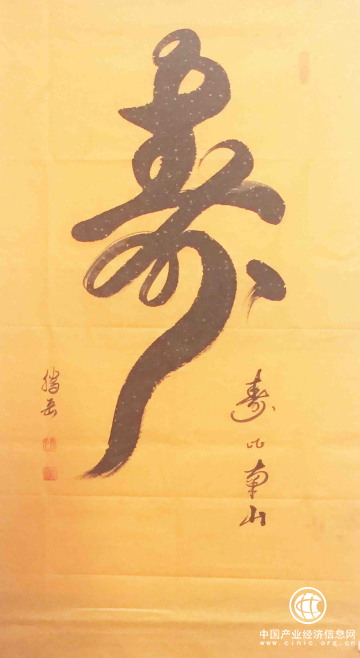 寿
寿比南山
胜岳
中国产业经济信息网
www.cinic.org.cn